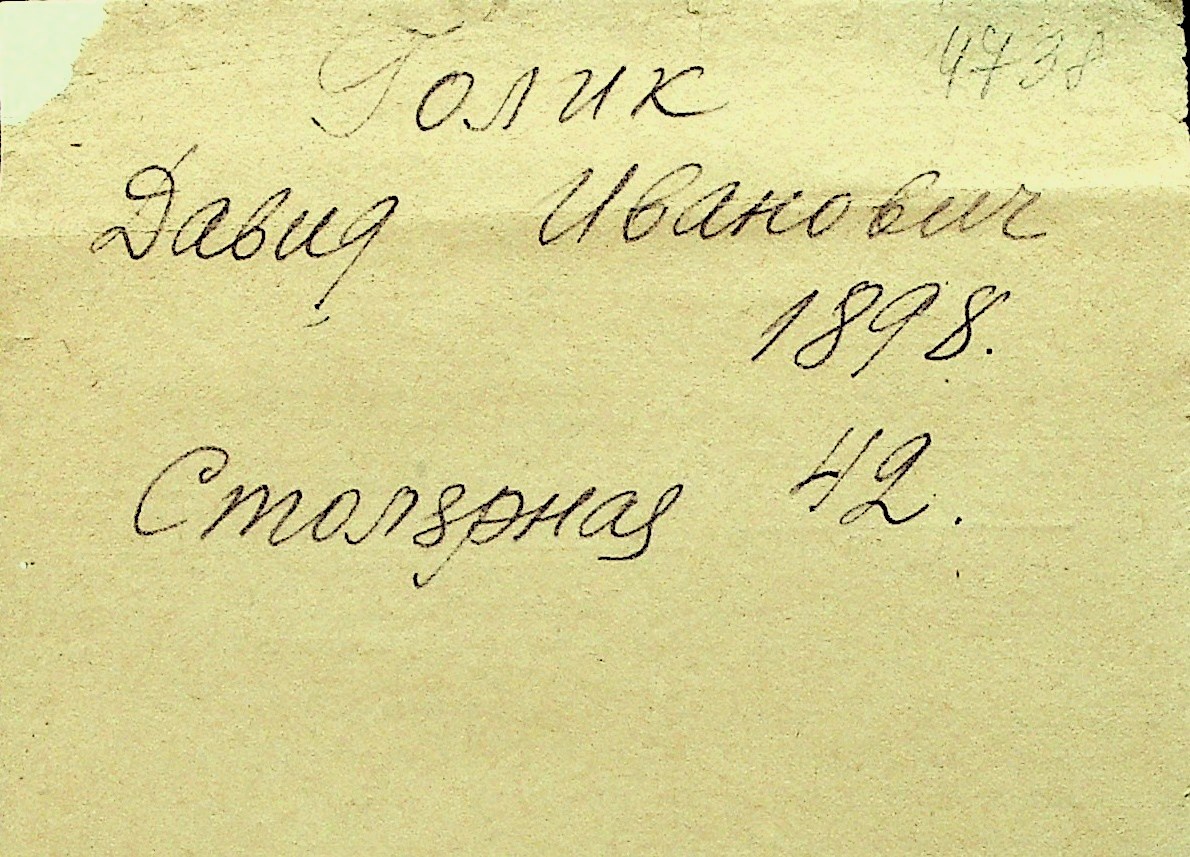 4738
Голик
Давид Иванович
1898.
Столярная 42.